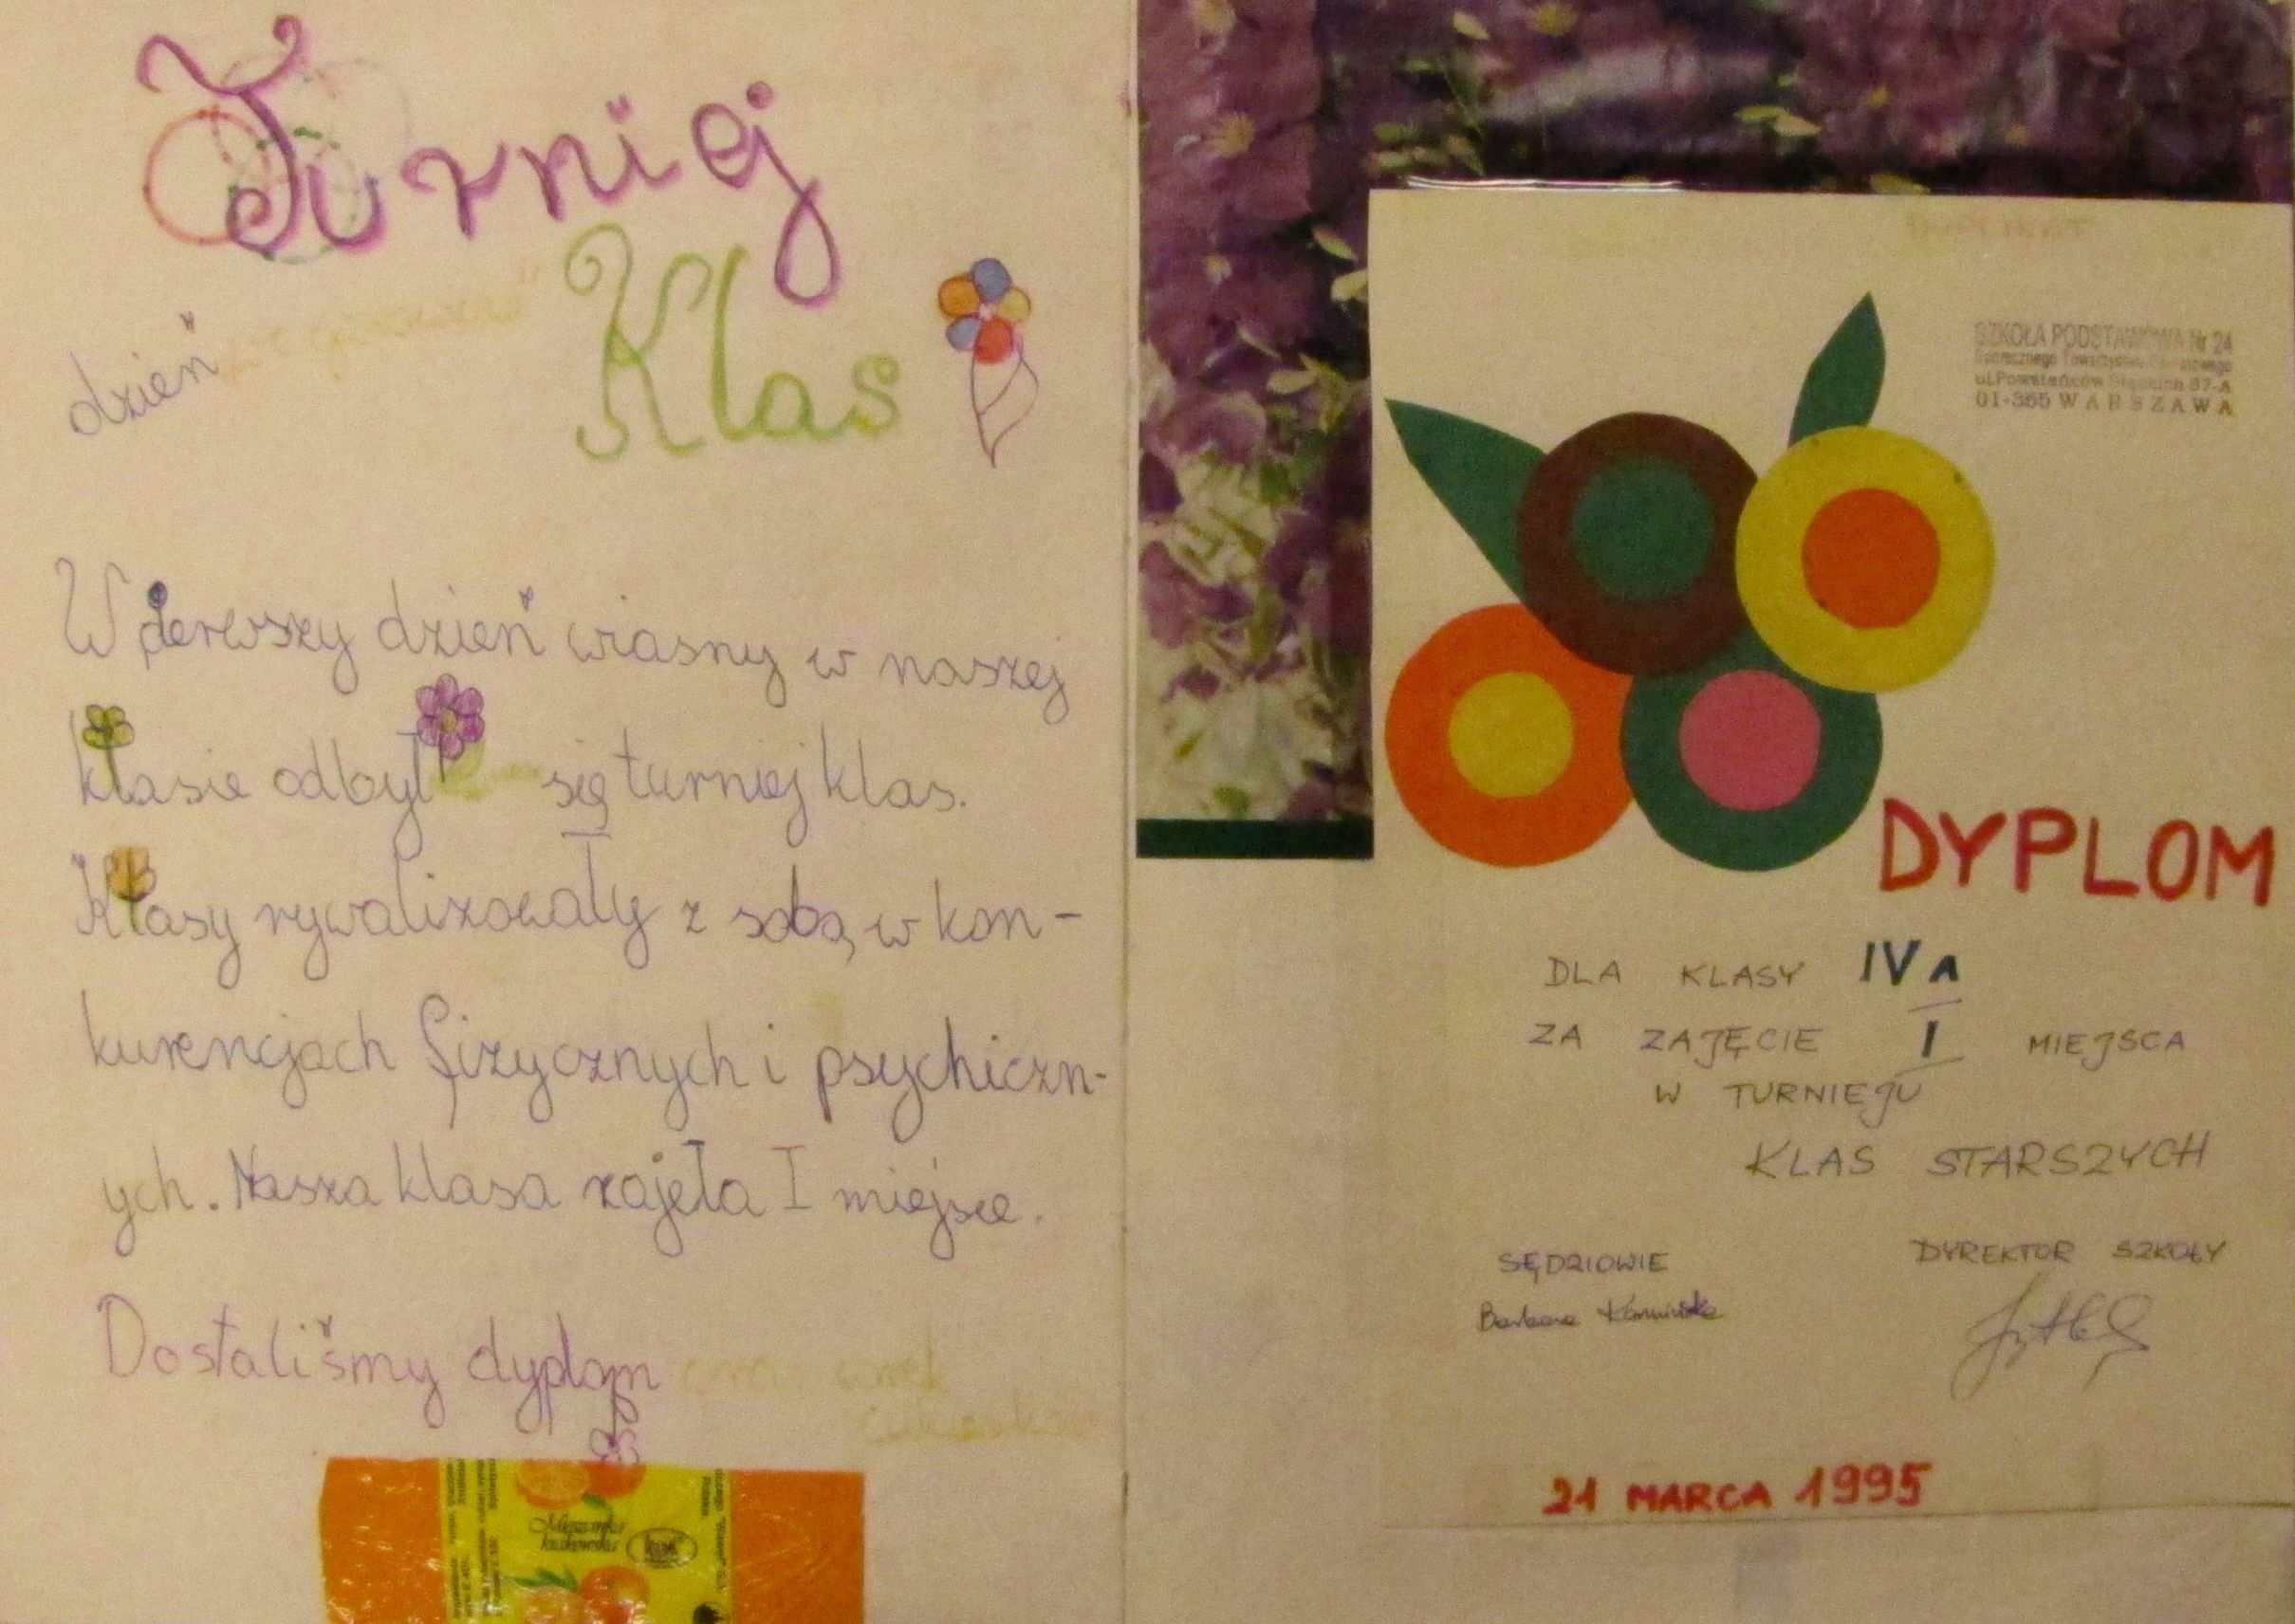 Turniej
Klas
dzień
W pierwszy dzień wiasny w naszej
klasie odbył się turniej klas.
Klasy rywalizowały z sobą w kon-
kurencjach fizycznych i psychiczn-
ych. Nasza klasa zajęła I miejsce.
Dostaliśmy dyplom
Mieszanka
krakowska
SZKOŁA PODSTAWOWA Nr 24
Społecznego Towarzystwa Oświatowego
ul. Powstańców Śląskich 67-A
01-355 WARSZAWA
DYPLOM
DLA KLASY IV A
ZA ZAJĘCIE I MIEJSCA
W TURNIEJU
KLAS STARSZYCH
SĘDZIOWIE
DYREKTOR SZKOŁY
Barbara
21 MARCA 1995